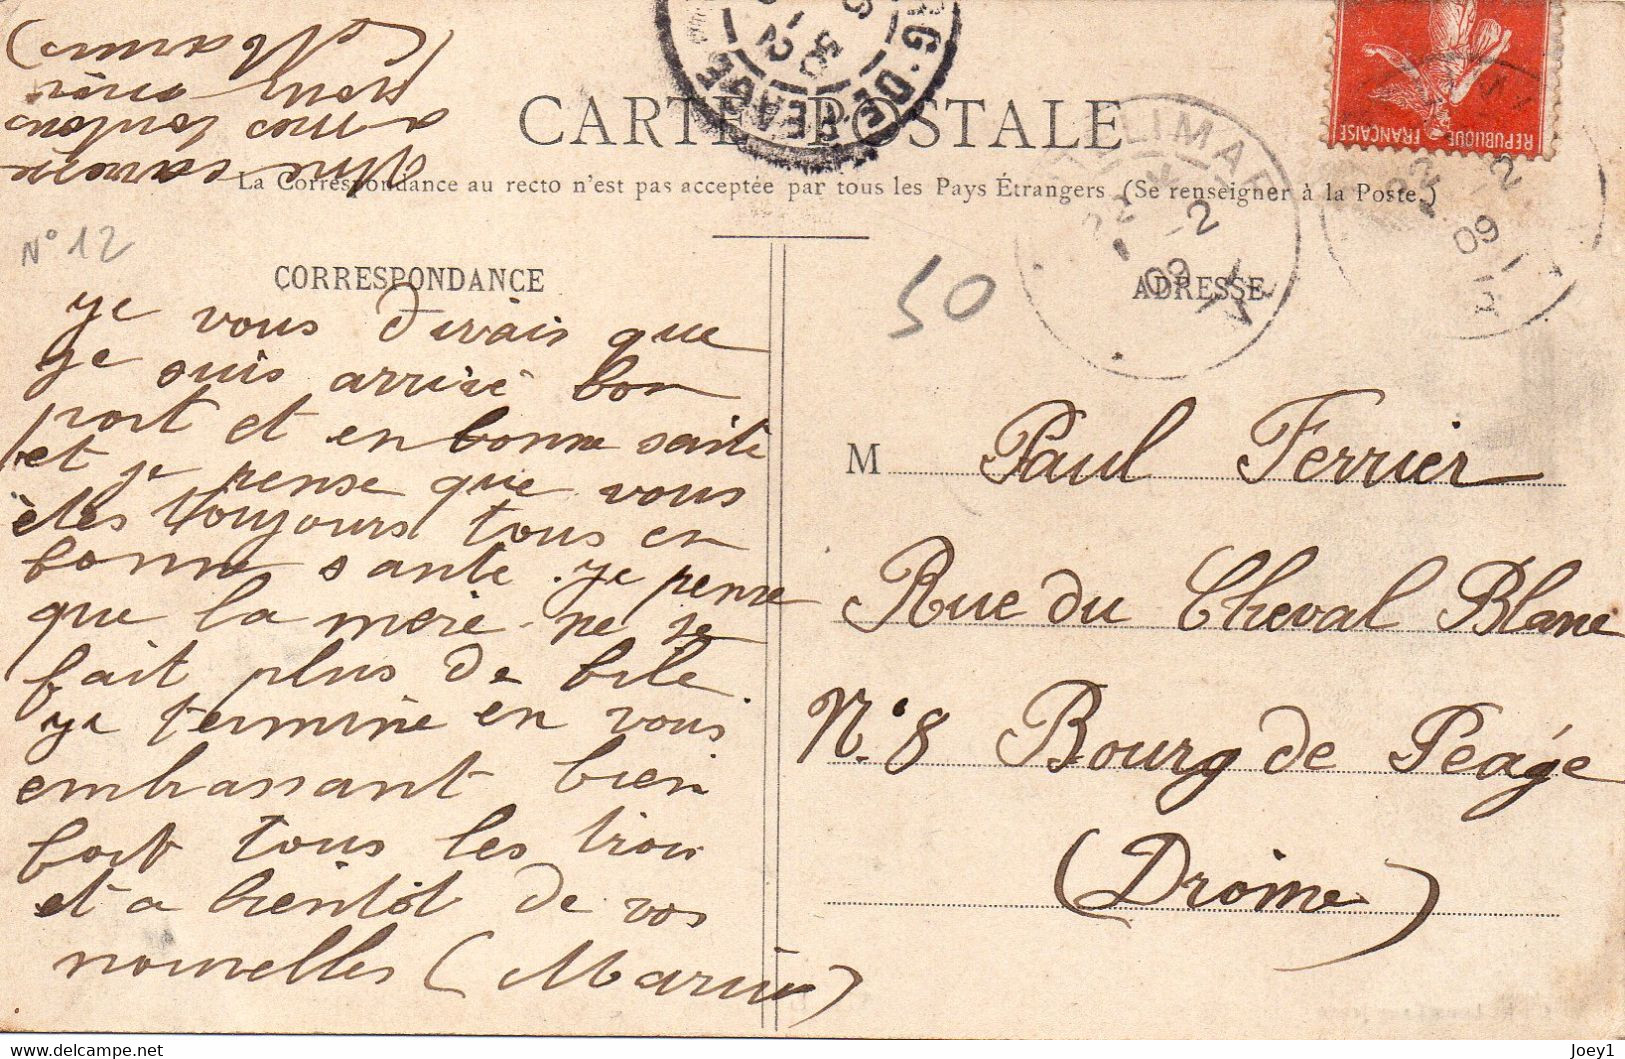 CARTE POSTALE
La Correspondance au recto n'est pas acceptée par tous les Pays Étrangers (Se renseigner à la Poste.)
N° 12
50
CORRESPONDANCE
ye vous dirais que
ye suis arrivé bon
port et en bonne sante
et je pense que vous
êtes toujours tous en
bonne sante. ye pense
que la mere ne se
fait plus de bile.
ye termine en vous
embrassant bien
fort tous les trois
et a bientôt de vos
nouvelles (Marius)
Une caresse
a mes toutous
pour moi
(Marius)
ADRESSE
M Paul Ferrier
Rue du Cheval Blanc
N° 8 Bourg de Peáge
(Drome)
REPUBLIQUE FRANÇAISE
RG-DE-PEAGE
LIMAR
22 -2
09
22 -2
09
Joey1
delcampe.net